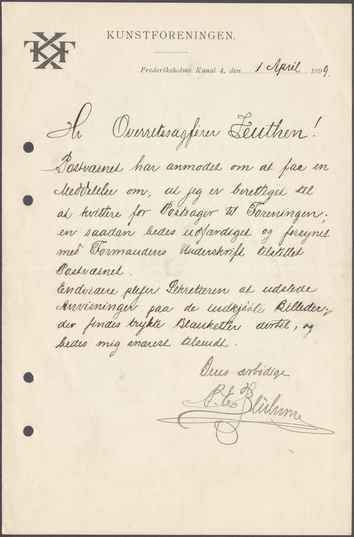 KUNSTFORENINGEN.
Frederiksholms Kanal 4, den 1 April 1899.
Hr Overretssagfører Zeuthen!
Postvæsnet har anmodet om at faa en
Meddelelse om, at jeg er berettiget til
at kvittere for Postsager til Foreningen;
en saadan bedes udfærdiget og forsynet
med Formandens Underskrift tilstillet
Postvæsnet.
Endvidere plejer Sekretæren at udstede
Anvisninger paa de indkjøbte Billeder,
der findes trykte Blanketter dertil, og
bedes mig snarest tilsendt.
Deres ærbødige